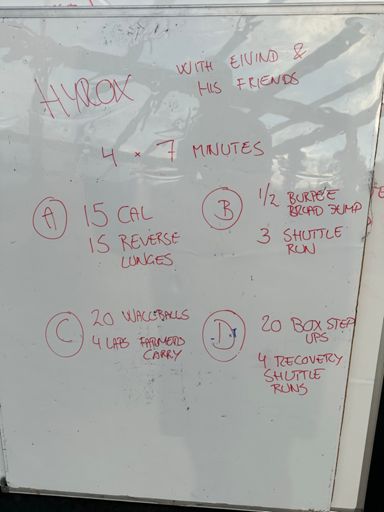 HYROX
WITH EIVIND &
HIS FRIENDS
4 x 7 MINUTES
A
15 CAL
15 REVERSE
LUNGES
B
1/2 BURPEE
BROAD JUMP
3 SHUTTLE
RUN
C
20 WALLBALLS
4 LAPS FARMERS
CARRY
D
20 BOX STEP
UPS
4 RECOVERY
SHUTTLE
RUNS